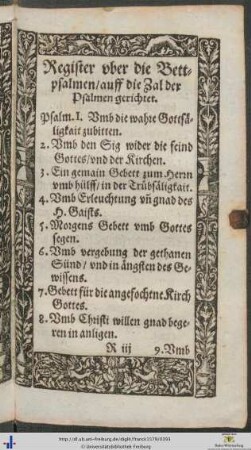 Register vber die Bett-
psalmen/auff die Zal der
Psalmen gerichtet.
Psalm. 1. Vmb die wahre Gottsä-
ligkait zubitten.
2. Vmb den Sig wider die feind
Gottes/vnd der Kirchen.
3. Ein gemain Gebett zum Herrn
vmb hülff/in der Trübsäligkait.
4. Vmb Erleuchtung vñ gnad des
H. Gaists.
5. Morgens Gebett vmb Gottes
segen.
6. Vmb vergebung der gethanen
Sünd/vnd in ängsten des Ge-
wissens.
7. Gebett für die angefochtne Kirch
Gottes.
8. Vmb Christi willen gnad bege-
ren in anligen.
R iij 9. Vmb
© Universitätsbibliothek Freiburg